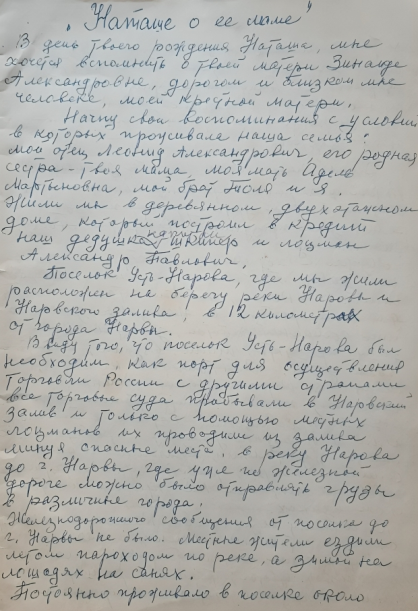 "Наташе о ее маме"
В день твоего рождения Наташа, мне
хочется вспомнить о твоей матери Зинаиде
Александровне, дорогом и близком мне
человеке, моей крёстной матери.
Начну свои воспоминания с условий
в которых проживала наша семья:
мой отец Леонид Александрович, его родная
сестра - твоя мама, моя мать Адель
Мартыновна, мой брат Толя и я.
Жили мы в деревянном, двухэтажном
доме, который построил в кредит
наш дедушка капитан шкипер и лоцман
Александр Павлович.
Поселок Усть-Нарова, где мы жили
расположен на берегу реки Наровы и
Нарвского залива, в 12 километрах
от города Нарвы.
В виду того, что поселок Усть-Нарова был
необходим, как порт для осуществления
торговли России с другими странами
все торговые суда прибывали в Наровский
Залив и только с помощью местных
лоцманов их проводили из залива
минуя опасные места, в реку Нарова
до г. Нарвы, где уже по железной
дороге можно было отправлять грузы
в различные города.
Железнодорожного сообщения от поселка до
г. Нарвы не было. Местные жители ездили
летом пароходом по реке, а зимой на
лошадях на санях.
Постоянно проживало в поселке около